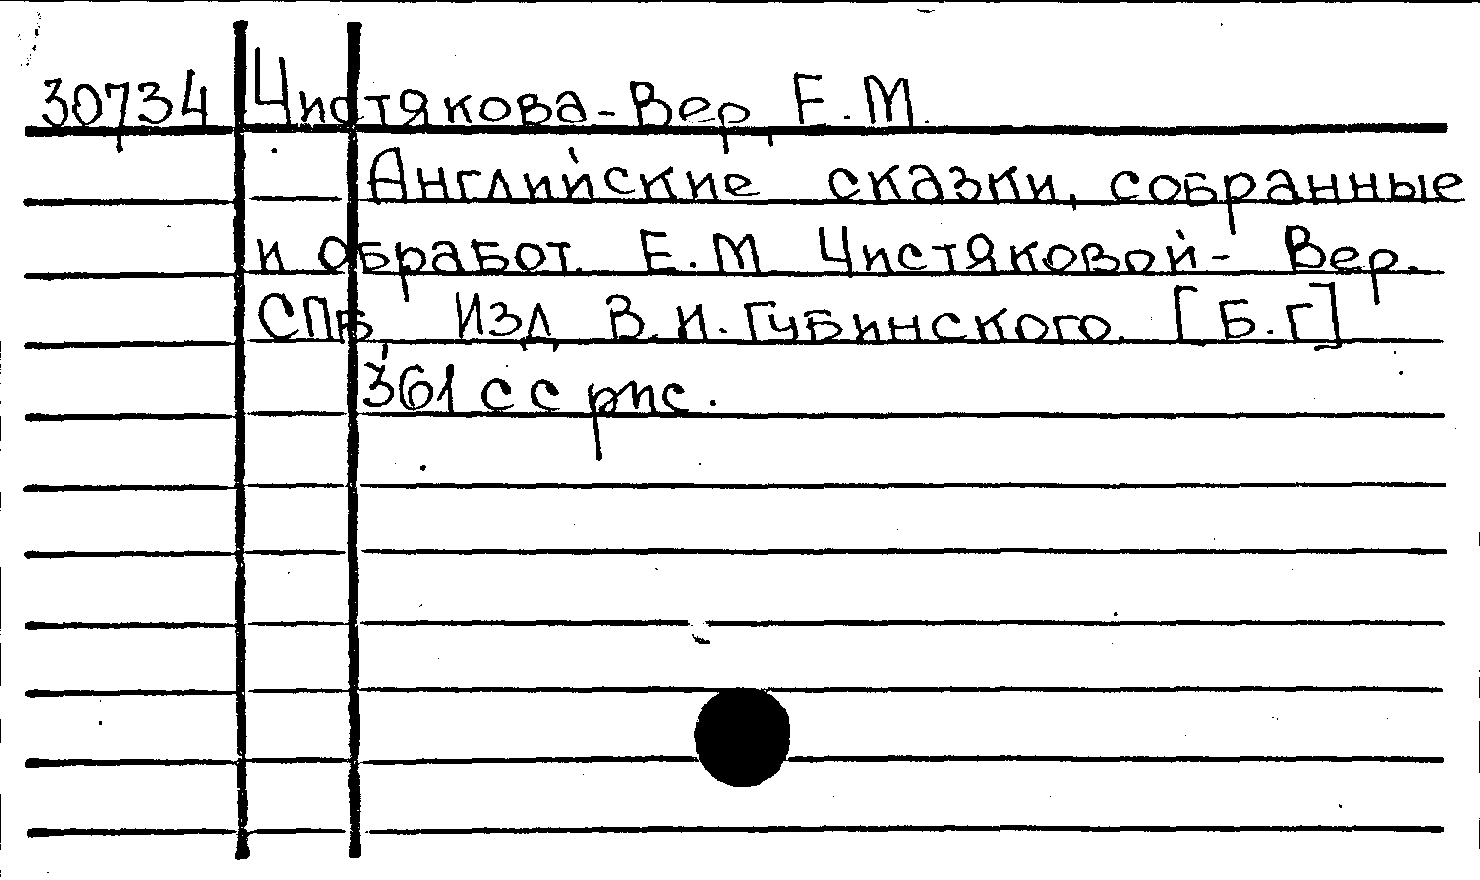 30734 Чистякова-Вер, Е.М.
Английские сказки, собранные
и обработ. Е.М. Чистяковой-Вер.
СПБ, Изд, В.И.Губинского. [Б.Г]
361 с с рис.